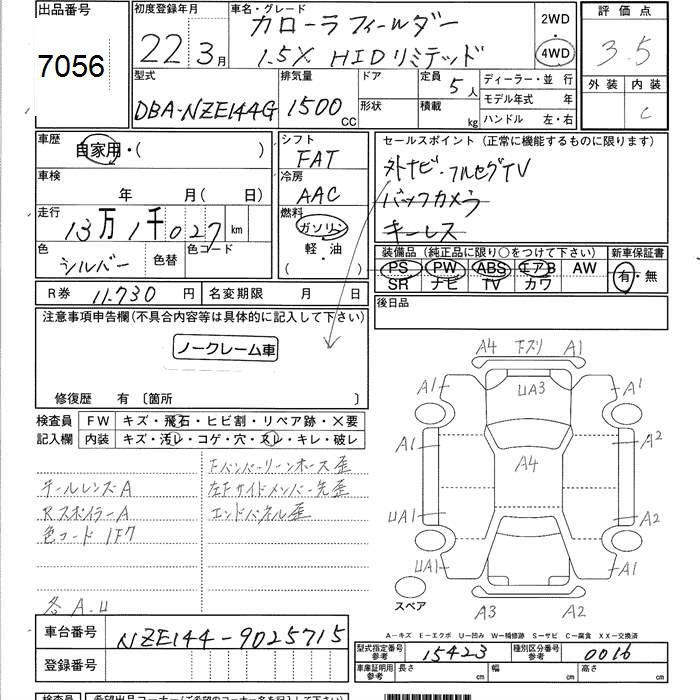 出品番号
7056
初度登録年月
22年3月
車名・グレード
カローラフィールダー
1.5X HIDリミテッド
2WD
4WD
評価点
3.5
外装 内装
C
型式
DBA-NZE144G
排気量
1500cc
ドア
形状
定員 5人
積載 kg
ディーラー・並行
モデル年式 年
ハンドル 左・右
車歴
自家用・( )
車検
年 月( 日)
走行
13万1千027km
色
シルバー
色替
色コード
シフト
FAT
冷房
AAC
燃料
ガソリン
軽・油
( )
セールスポイント(正常に機能するものに限ります)
外ナビ・フルセグTV
バックカメラ
キーレス
装備品(純正品に限り○をつけて下さい)
新車保証書
PS PW ABS エアB AW
SR ナビ TV カワ
有・無
R券 11.730円
名変期限 月 日
後日品
注意事項申告欄(不具合内容等は具体的に記入して下さい)
ノークレーム車
修復歴 有〔箇所 〕
検査員
記入欄
FW キズ・飛石・ヒビ割・リペア跡・×要
内装 キズ・汚レ・コゲ・穴・スレ・キレ・破レ
テールレンズA
RスポイラーA
色コード 1F7
各A.U
Fバンパーリーンホース歪
左Fサイドメンバー先歪
エンドパネル歪
A4 下スリ A1
A1 UA3 A1
A1 A2
A4
UA1 A2
UA1 A1
A3 A2
スペア
A-キズ E-エクボ U-凹み W-補修跡 S-サビ C-腐食 XX-交換済
車台番号
NZE144-9025715
登録番号
型式指定番号
参考
15423
種別区分番号
参考
0016
車庫証明用
参考
長さ cm 幅 cm 高さ cm
検査員
希望出品コーナー